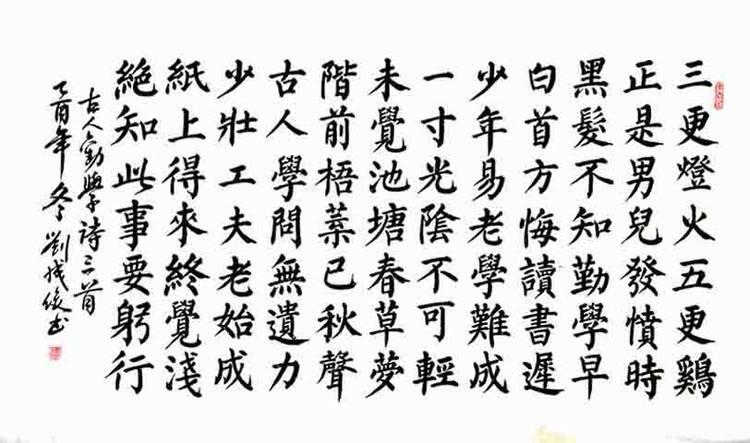 三更燈火五更鷄
正是男兒發憤時
黑髮不知勤學早
白首方悔讀書遲
少年易老學難成
一寸光陰不可輕
未覺池塘春草夢
階前梧葉已秋聲
古人學問無遺力
少壯工夫老始成
紙上得來終覺淺
絶知此事要躬行
古人勸學詩三首
乙酉年冬劉成书